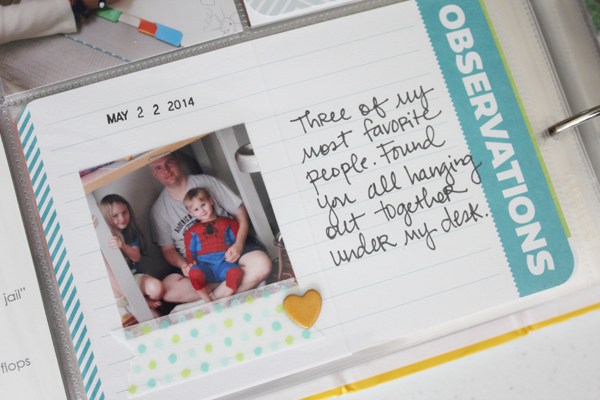 MAY 2 2 2014
Three of my
most favorite
people. Found
you all hanging
out together
under my desk.
OBSERVATIONS
jail"
flops